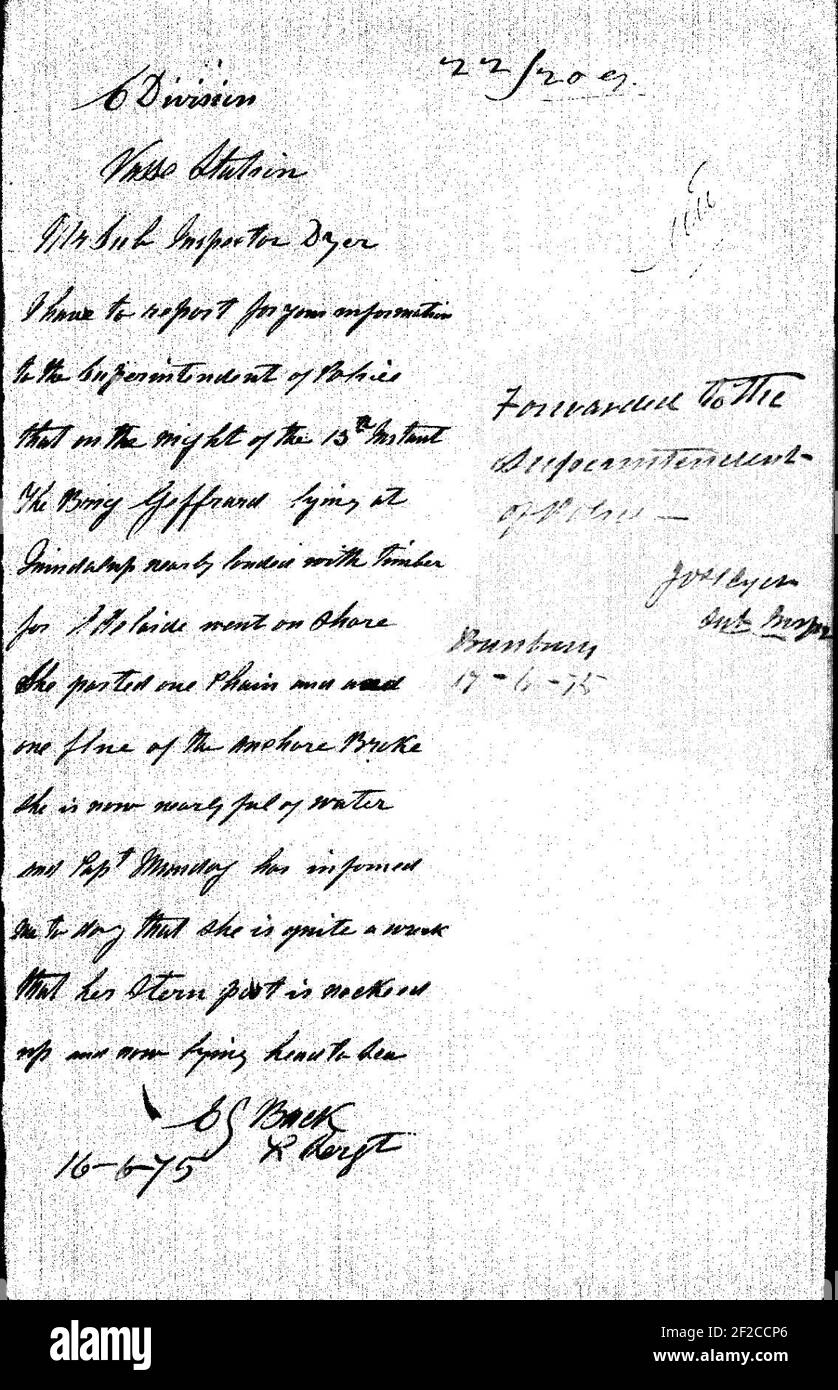 Division
Vasse Station
Mr Sub Inspector Dyer
I have to report for your information
to the Superintendent of Police
that on the night of the 13th Instant
The Brig Geffrard lying at
Quindalup nearly loaded with timber
for Adelaide went on shore
She parted one Chain and and
one flue of the anchore Broke
she is now nearly ful of water
and Capt Munday has infomed
me to day that she is quite a wreck
that her Stern post is nocked
up and now lying head to Sea
Back
Sergt
16-6-75
Forwarded to the
Superintendent
of Police
Jos Dyer
Sub Inspr
Bunbury
17-6-75
alamy
Image ID: 2F2CCP6
www.alamy.com